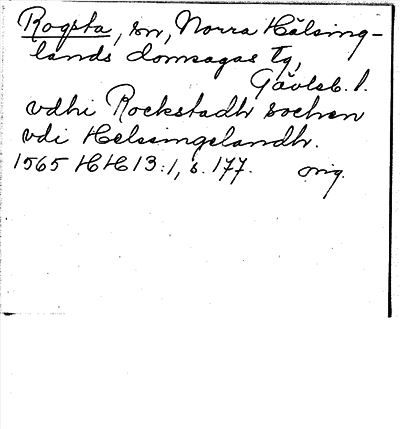 Rogsta, sn, Norra Hälsing-
lands domsagas tg,
Gävleb. l.
vdhi Rockstadh sochen
vdi Helsingelandh.
1565 HH 13:1, s. 177. orig.